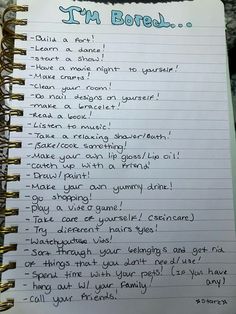 I'M BORED...
- Build a fort!
- Learn a dance!
- start a show!
- Have a movie night to yourself!
- Make crafts!
- Clean your room!
- Do nail designs on yourself!
- make a bracelet!
- Read a book!
- Listen to music!
- Take a relaxing shower/bath!
- Bake/cook something!
- Make your own lip gloss/Lip oil!
- Catch up with a friend!
- Draw/paint!
- Make your own yummy drink!
- go shopping!
- Play a video game!
- Take care of yourself! (skincare)
- Try different hairstyles!
- Watch youtube vids!
- Sort through your belongings and get rid
of things that you don't need/use!
- Spend time with your pets! (If you have
- hang out w/ your family! any)
- call your friends.